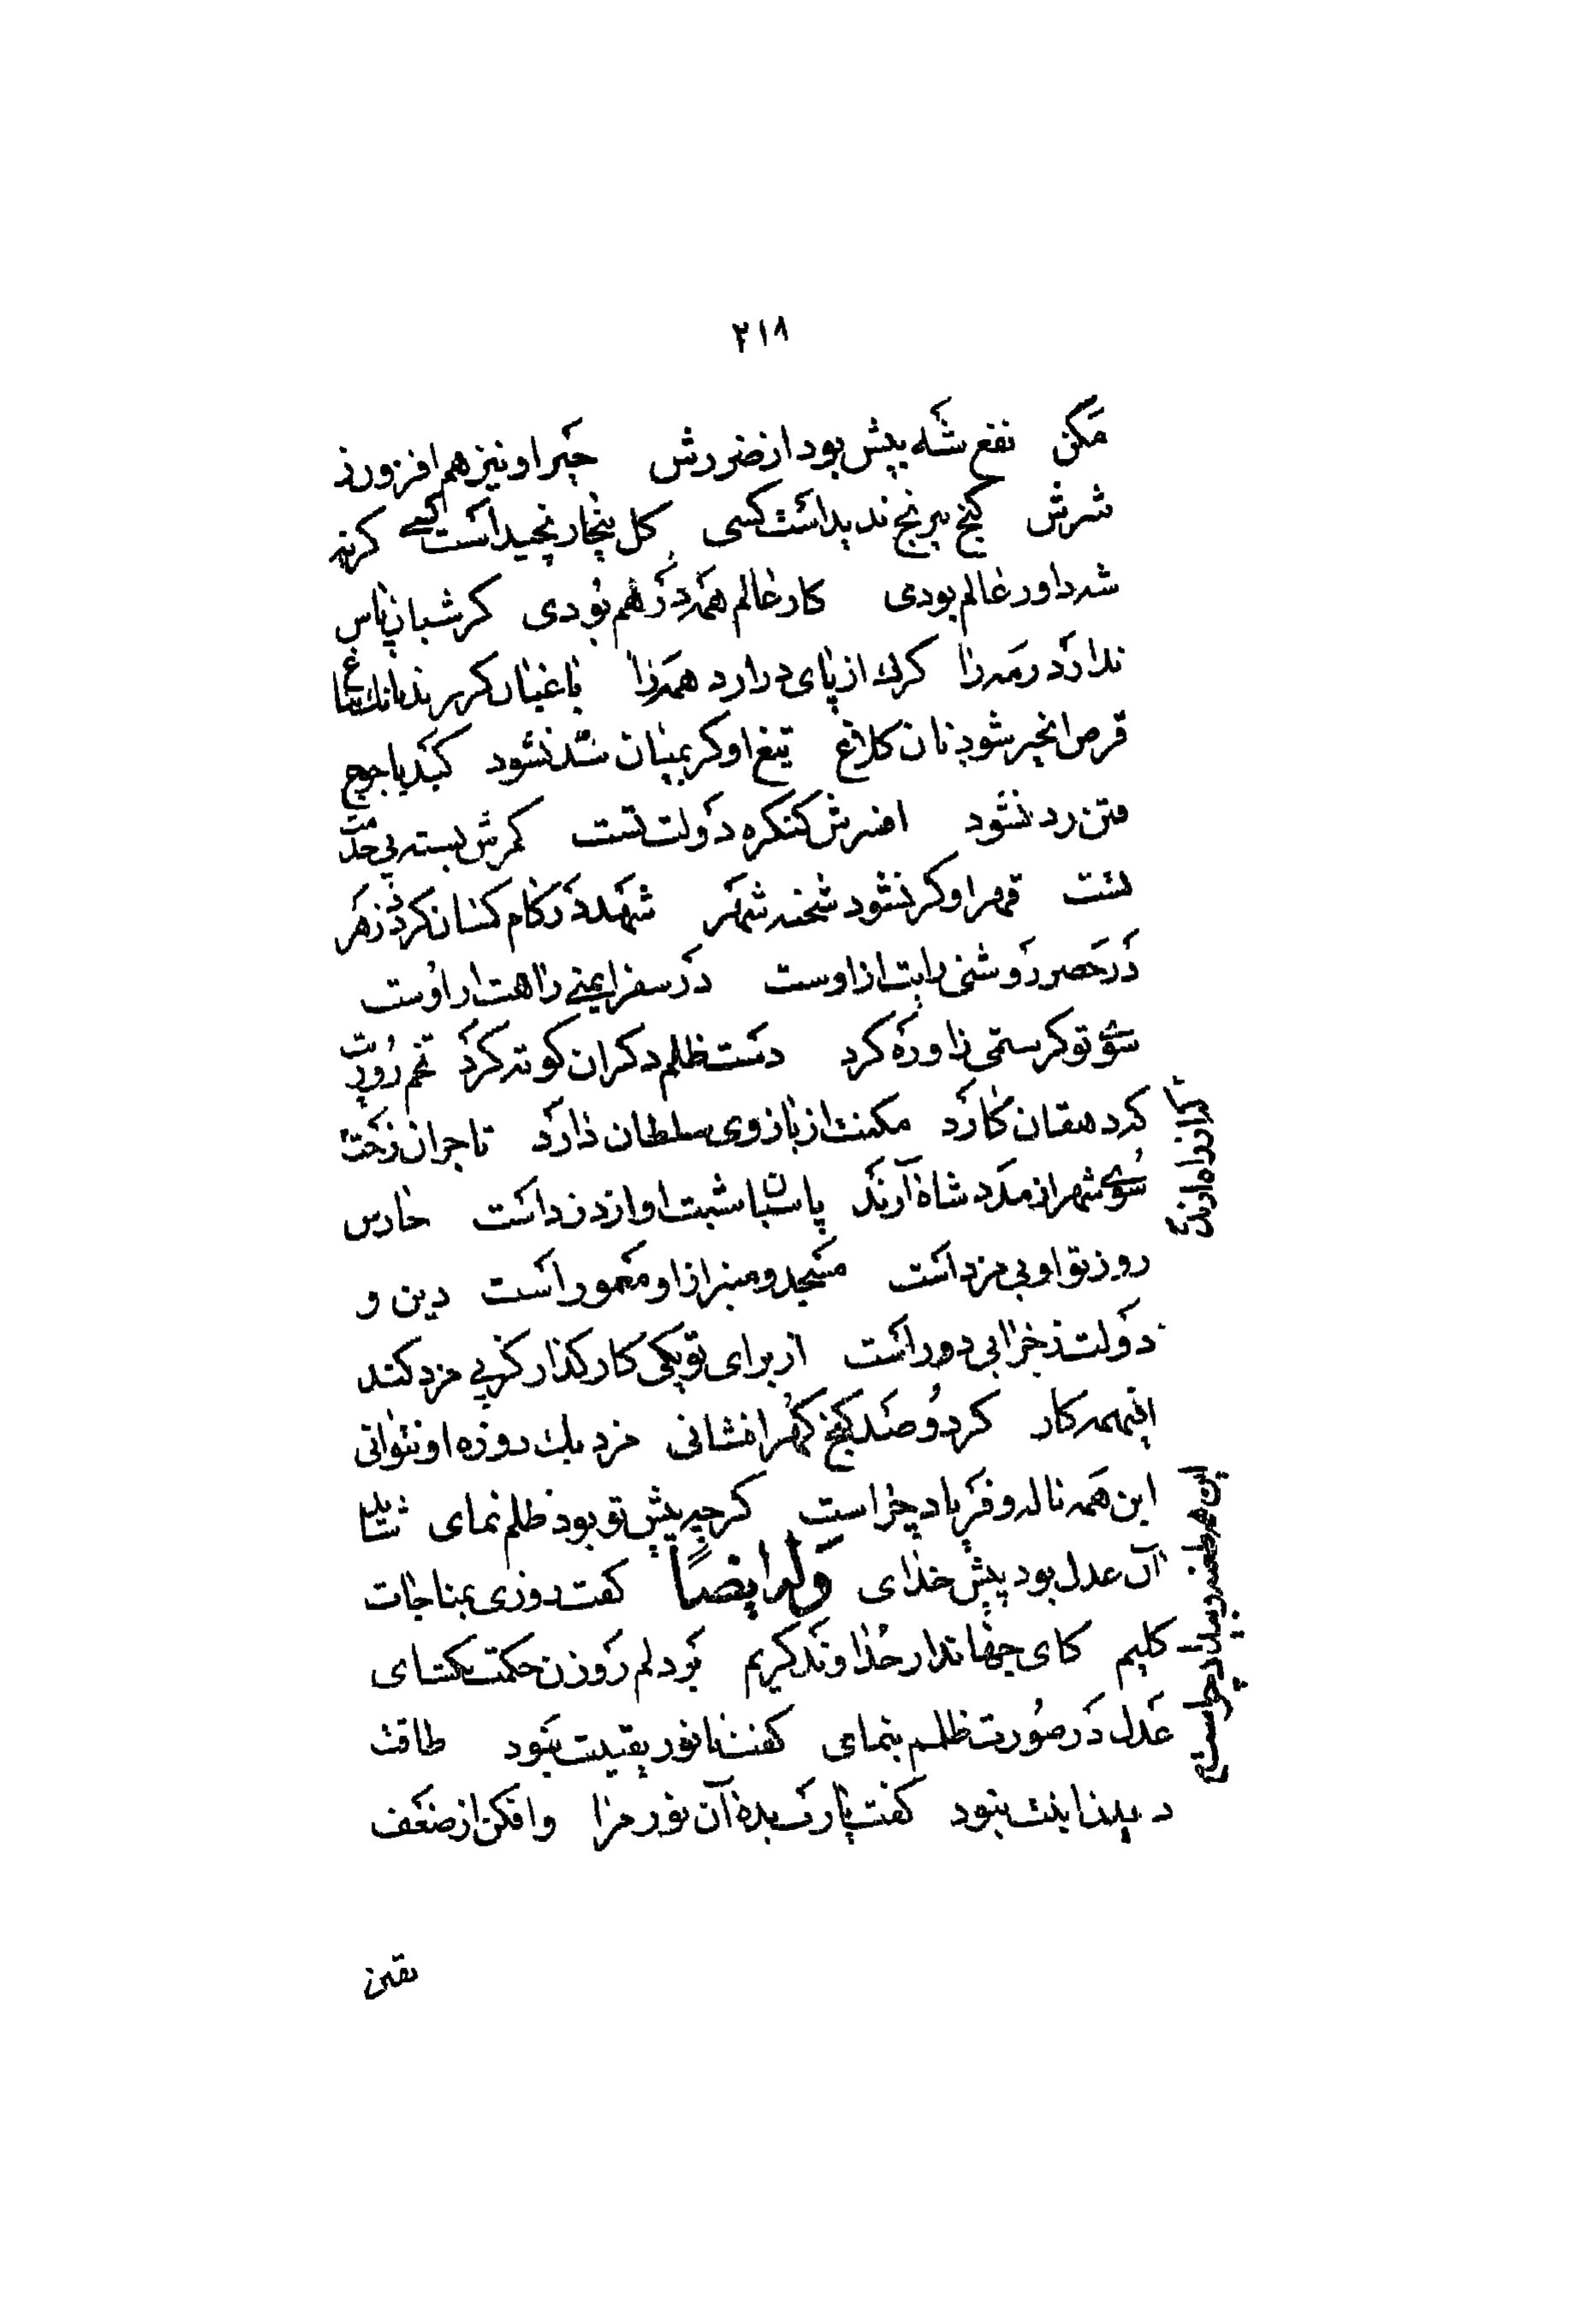 ۲۱۸
مکن نفع شه بیش بود از ضررش خیر او نیز هم افزون ز
شرش گنج بیرنج ندیداست کسی گل بیخار نچیداست کسی گر نه
شه داور عالم بودی کار عالم همه درهم بودی گر شبان پاس
ندارد رمه را گرگ از پای درارد همه را باغبان گر نزند بانک بباغ
قرص انجیر شود نان کلاغ تیغ او گر بمیان سد نشود کید یاجوج
فتن رد نشود افسرش کنکره دولت تست کمرش بسته پی خدمت
تست قهر او گر نشود شحنه شهر شهد در کام کسان گردد زهر
در حضر روشنی رایت از اوست در سفر ایمنی راهت از اوست
سوی تو گر ستمی زاو ره کرد دست ظلم دگران کوته کرد تخم روزیت
که دهقان کارد مکنت از بازوی سلطان دارد تاجران رخت
تا از راه آرند
سوی شهر از مدد شاه آرند پاسبان شبت او از دزد است حارس
روز تو او بی مزد است مسجد و منبر از او معمور است دین و
دولت ز خرابی دور است از برای تو یکی کارگذار گر بی مزد کند
اینهمه کار گر دو صد گنج گهر افشانی مزد یک روزه او نتوانی
این همه ناله و فریاد چراست گر چه پیش تو بود ظلم نمای شاید
این همه طعنه و بیداد چراست
آن عدل بود پیش خدای وله ایضاً گفت روزی بمناجات
کلیم کای جهاندار خداوند کریم بر دلم روزن حکمت بگشای
عدل در صورت ظلم بنمای گفت تا نور یقینت نبود طاقت
دیدن اینت نبود گفت یارب بده آن نور مرا وافکن از ضعف
یقین